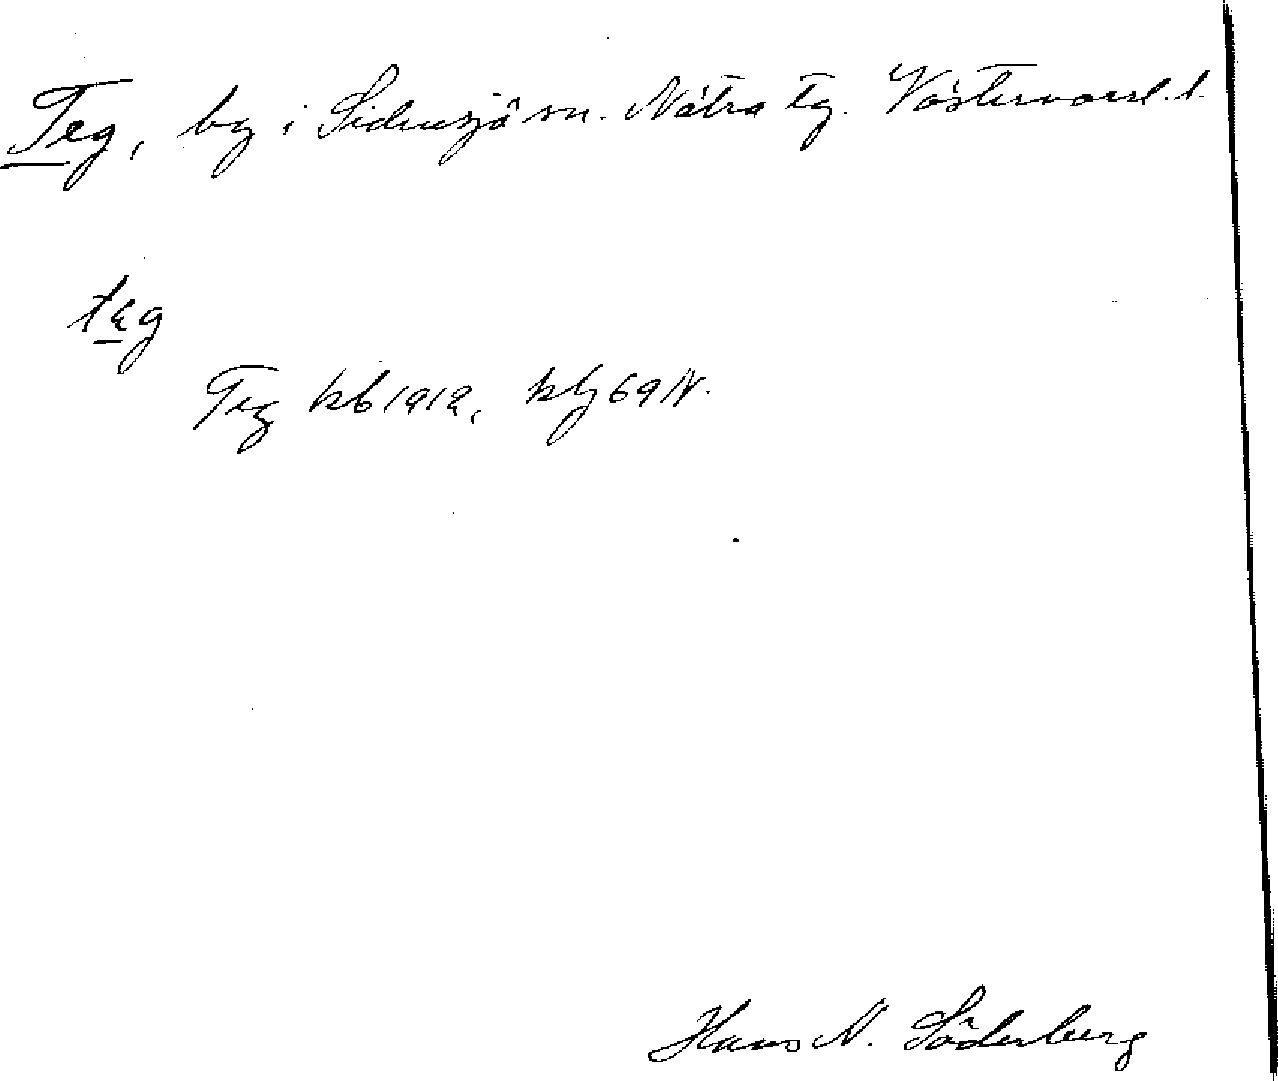 Teg, by i Sidensjö sn. Nätra tg. Västernorrl. l.
teg
Teg kb 1919, kbj 69 N.
Hans N. Söderberg